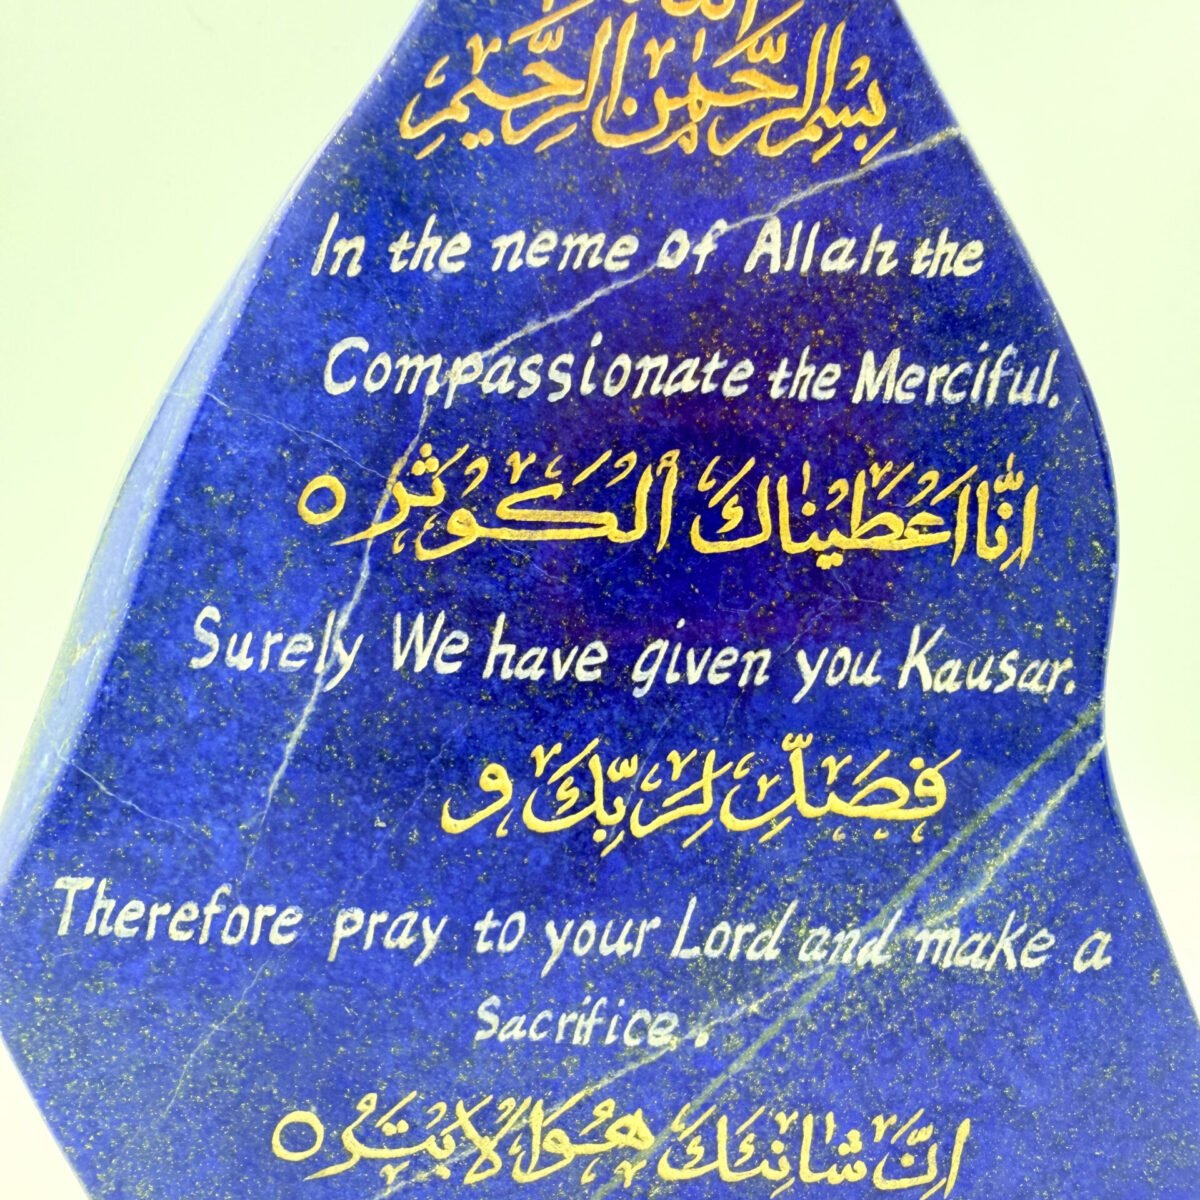 بِسْمِ اللهِ الرَّحْمٰنِ الرَّحِيْمِ
In the neme of Allah the
Compassionate the Merciful.
اِنَّا اَعْطَيْنَاكَ الْكَوْثَرَ ○
Surely We have given you Kausar.
فَصَلِّ لِرَبِّكَ و
Therefore pray to your Lord and make a
Sacrifice.
اِنَّ شَانِئَكَ هُوَ الْاَبْتَرُ ○